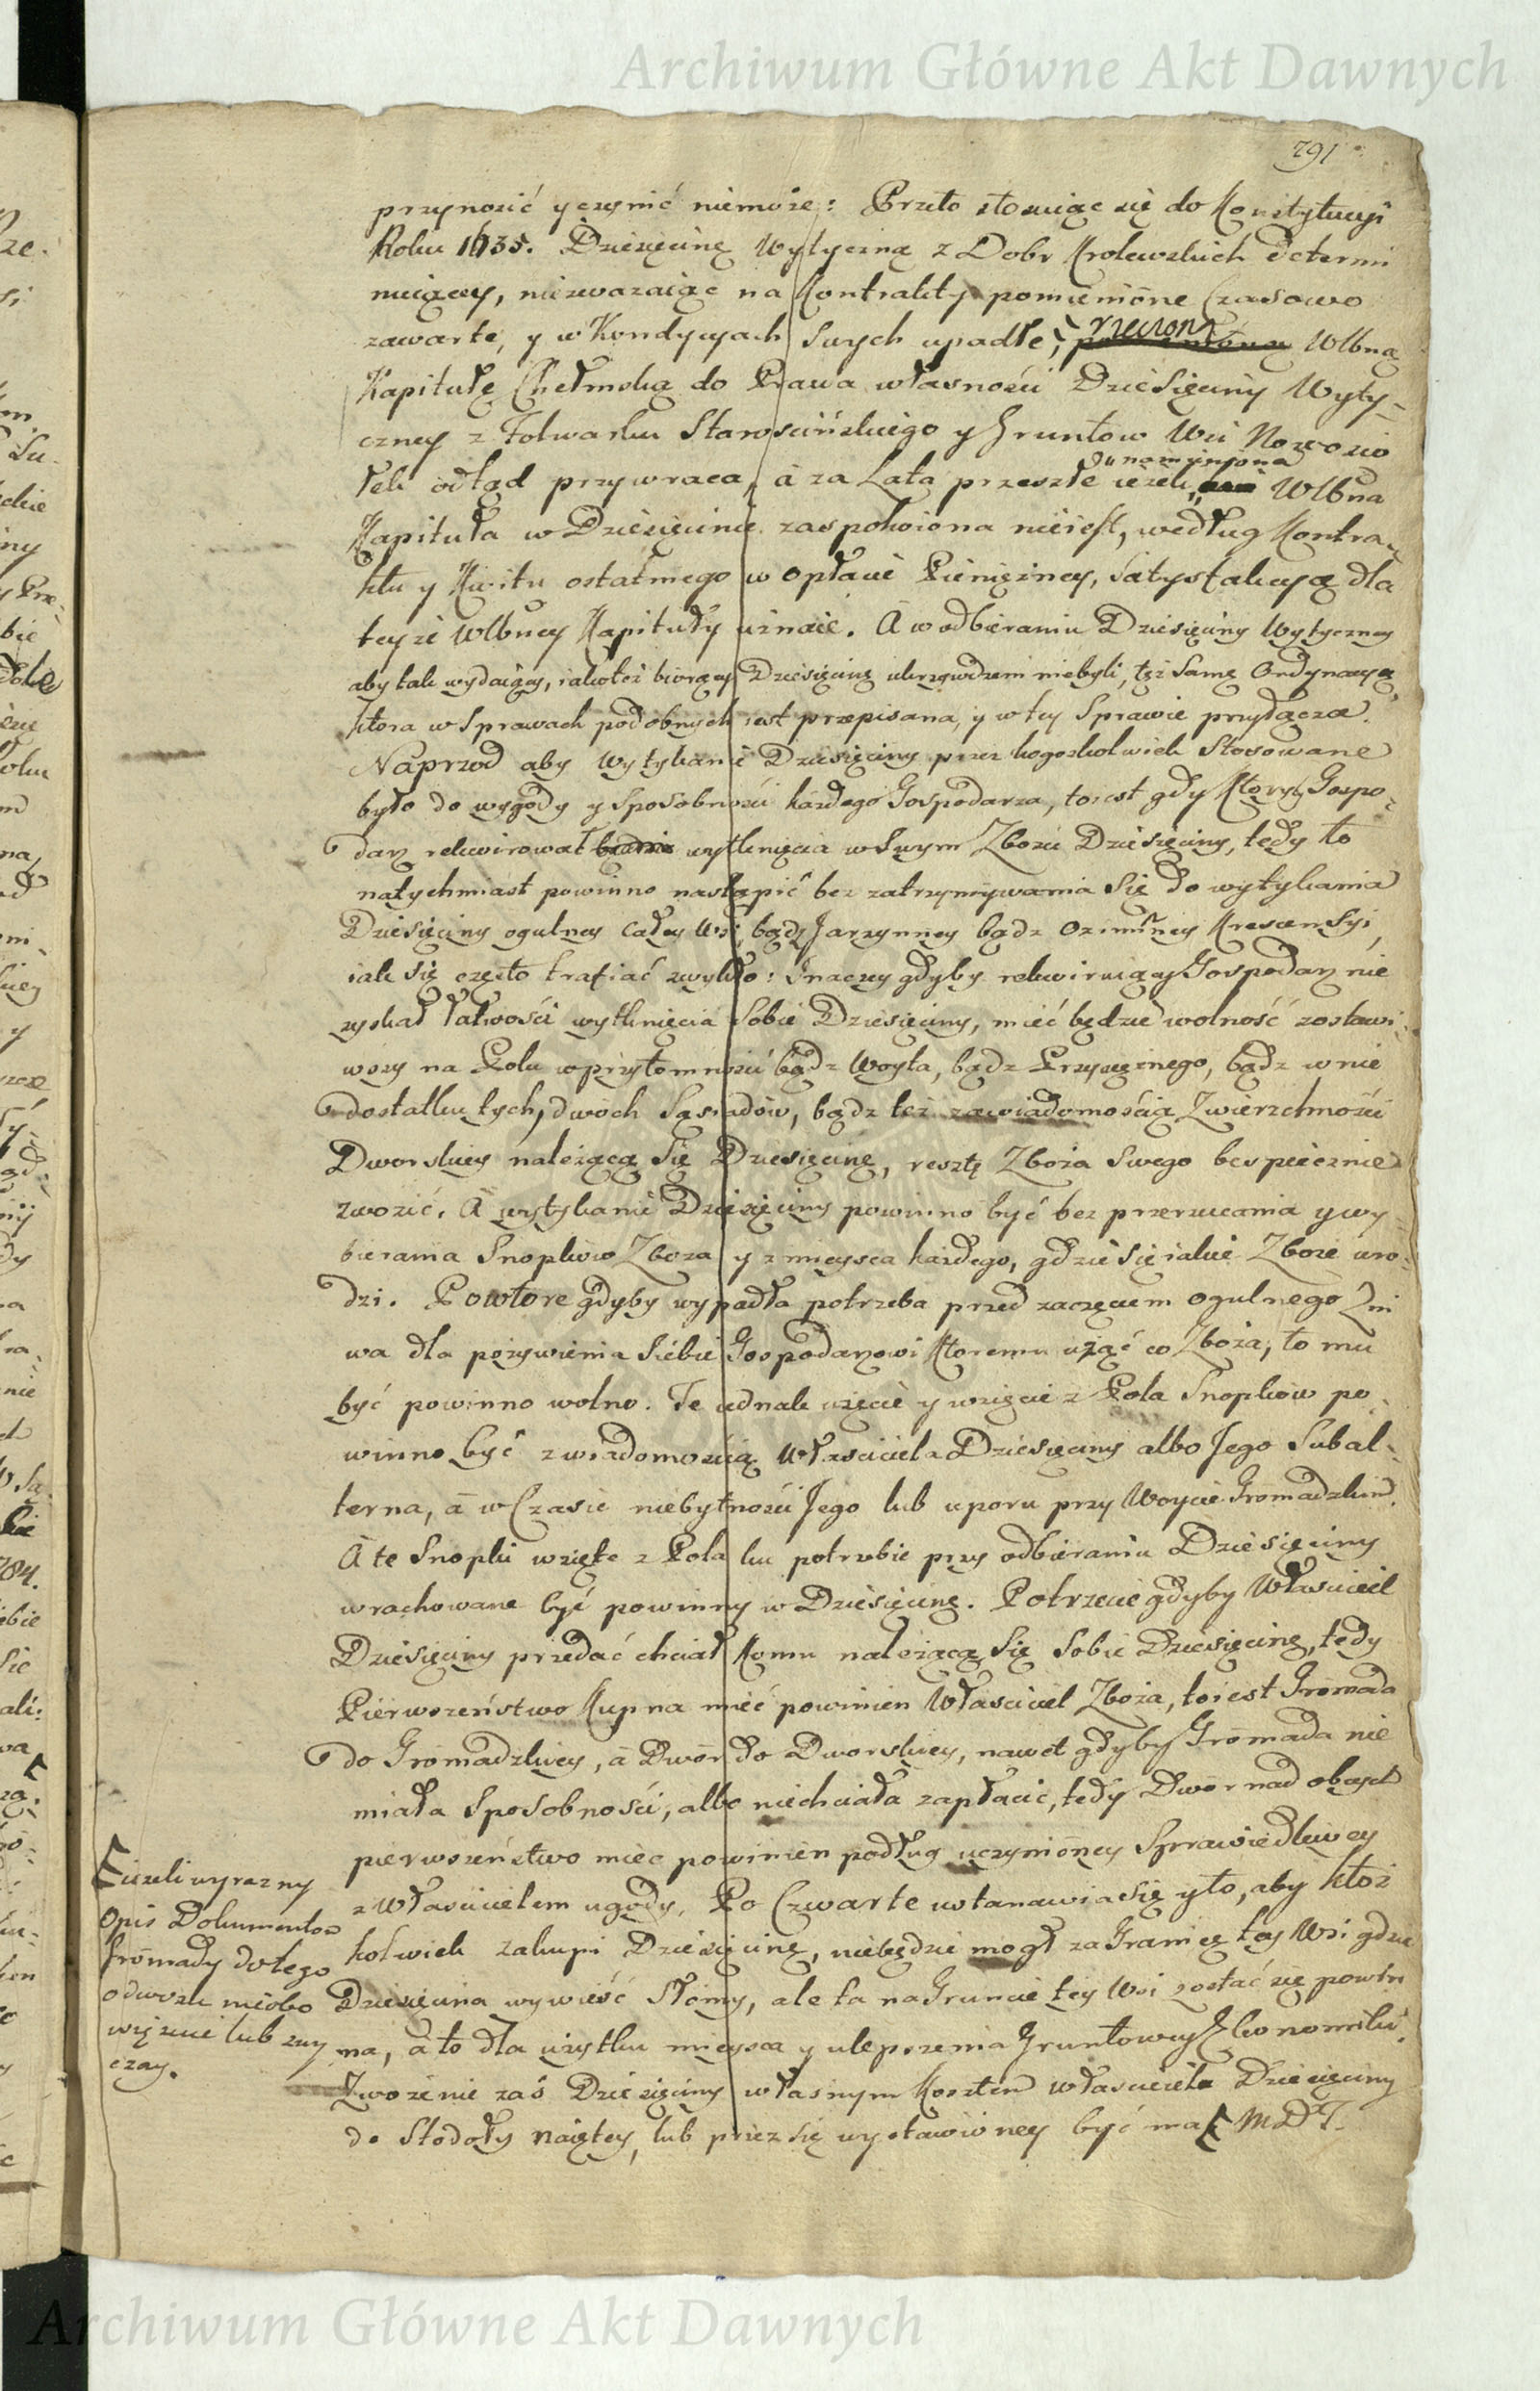 Archiwum Główne Akt Dawnych
791
przynosić y czynić niemoże: Przeto stosuiąc się do Konstytucyi
Roku 1635. Dziesięcinę Wytyczną z Dobr Krolewskich determi
nuiącey, niezwazaiąc na Kontrakty pomienione Czasowo
zawarte, y w Kondycyach swych upadłe, rzeczoną Wlbną
Kapitułę Chełmską do Prawa własności Dziesięciny Wyty-
czney z Folwarku Starościńskiego y Gruntow Wsi Nowosio
łek odtąd przywraca, à za Lata przeszłe ieżeli Wlbna
Kapituła w Dziesięcinie zaspokoiona nieiest, według Kontra-
ktu y Kwitu ostatniego w opłacie Pieniężney, satysfakcyą dla
teyże Wlbney Kapituły uznaie. A w odbieraniu Dziesięciny Wytyczney
aby tak wydaiący, iakoteż biorący Dziesięcinę ukrzywdzeni niebyli, tęż samę Ordynacyą
ktora w Sprawach podobnych iest przepisana, y w tey Sprawie przyłącza.
Naprzod aby Wytykanie Dziesięciny przez kogoszkolwiek stosowane
było do wygody y sposobności każdego Gospodarza, toiest gdy Ktory Gospo-
darz rekwirował wytknięcia w swym Zbożu Dziesięciny, tedy to
natychmiast powinno nastąpić bez zatrzymywania się do wytykania
Dziesięciny ogulney całey Wsi, bądz Jarzynney bądz oziminney Krescensyi,
iak się często trafiać zwykło: Inaczey gdyby rekwiruiący Gospodarz nie
zyskał łatwości wytknięcia sobie Dziesięciny, mieć będzie wolność zostawi-
wszy na Polu w przytomności bądz Woyta, bądz Przysiężnego, bądz w nie
dostatku tych, dwoch Sąsiadów, bądz też zawiadomością Zwierzchności
Dworskiey należącą się Dziesięcinę, resztę Zboża swego bespiecznie
zwozić. A wytykanie Dziesięciny powinno być bez przerzucania y wy-
bierania Snopkow Zboża y z mieysca każdego, gdzie się iakie Zboże uro-
dzi. Powtore gdyby wypadła potrzeba przed zaczęciem ogulnego Żni
wa dla pożywienia siebie Gospodarzowi Ktoremu użąć co Zboża, to mu
być powinno wolno. Te iednak użęcie y wzięcie z Pola Snopkow po-
winno być z wiadomością Własciciela Dziesięciny albo Jego Subal-
terna, à w Czasie niebytności Jego lub uporu przy Woycie Gromadzkim.
A te Snopki wzięte z Pola ku potrzebie przy odbieraniu Dziesięciny
wrachowane być powinny w Dziesięcinę. Potrzecie gdyby Własciciel
Dziesięciny przedać chciał Komu należącą się sobie Dziesięcinę, tedy
Pierwszeństwo Kupna mieć powinien Własciciel Zboża, toiest Gromada
do Gromadzkiey, à Dwór do Dworskiey, nawet gdyby Gromada nie
miała sposobności, albo niechciała zapłacic, tedy Dwór nad obcych
pierwszeństwo miec powinien podług uczynioney Sprawiedliwey
z Własicielem ugody. Po Czwarte ustanawia się y to, aby ktoż
kolwiek zakupi Dziesięcinę, niebędzie mogł za Granicę tey Wsi gdzie
Dziesięcina wywieść Słomy, ale ta na Gruncie tey Wsi zostać się powin
na, à to dla użytku mieysca y ulepszenia Gruntowey Ekonomiki.
Zwożenie zaś Dziesięciny własnym Kosztem własciciela Dziesięciny
do Stodoły naiętey, lub przez się wystawioney być ma MDJ.
ieżeli wyrazny
Opis Dokumentow
Gromady do tego
odwozu nieobo
więzuie lub zwy
czay.
Archiwum Główne Akt Dawnych